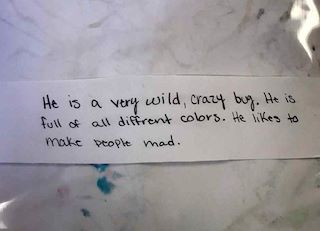 He is a very wild, crazy bug. He is
full of all diffrent colors. He likes to
make people mad.